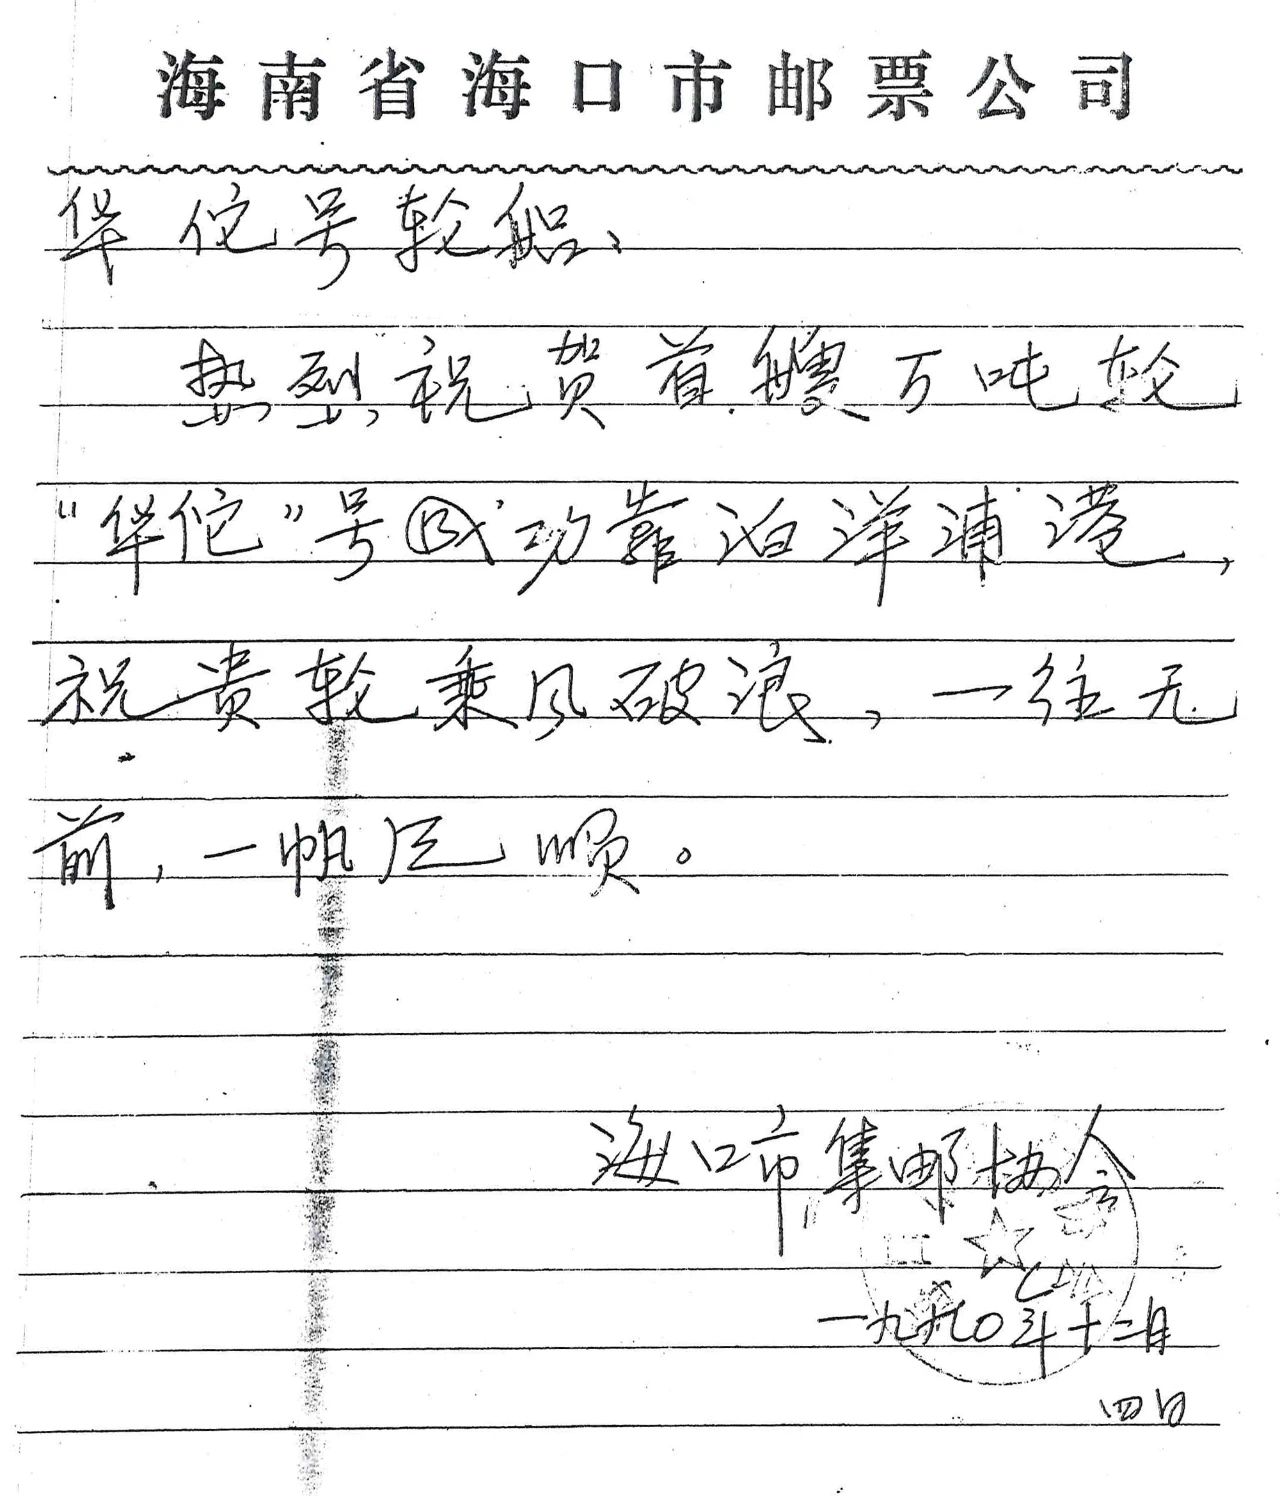 海南省海口市邮票公司
华佗号轮船、
热烈祝贺首艘万吨轮
“华佗”号成功靠泊洋浦港，
祝贵轮乘风破浪，一往无
前，一帆风顺。
海口市集邮协会
一九九〇年十二月
四日